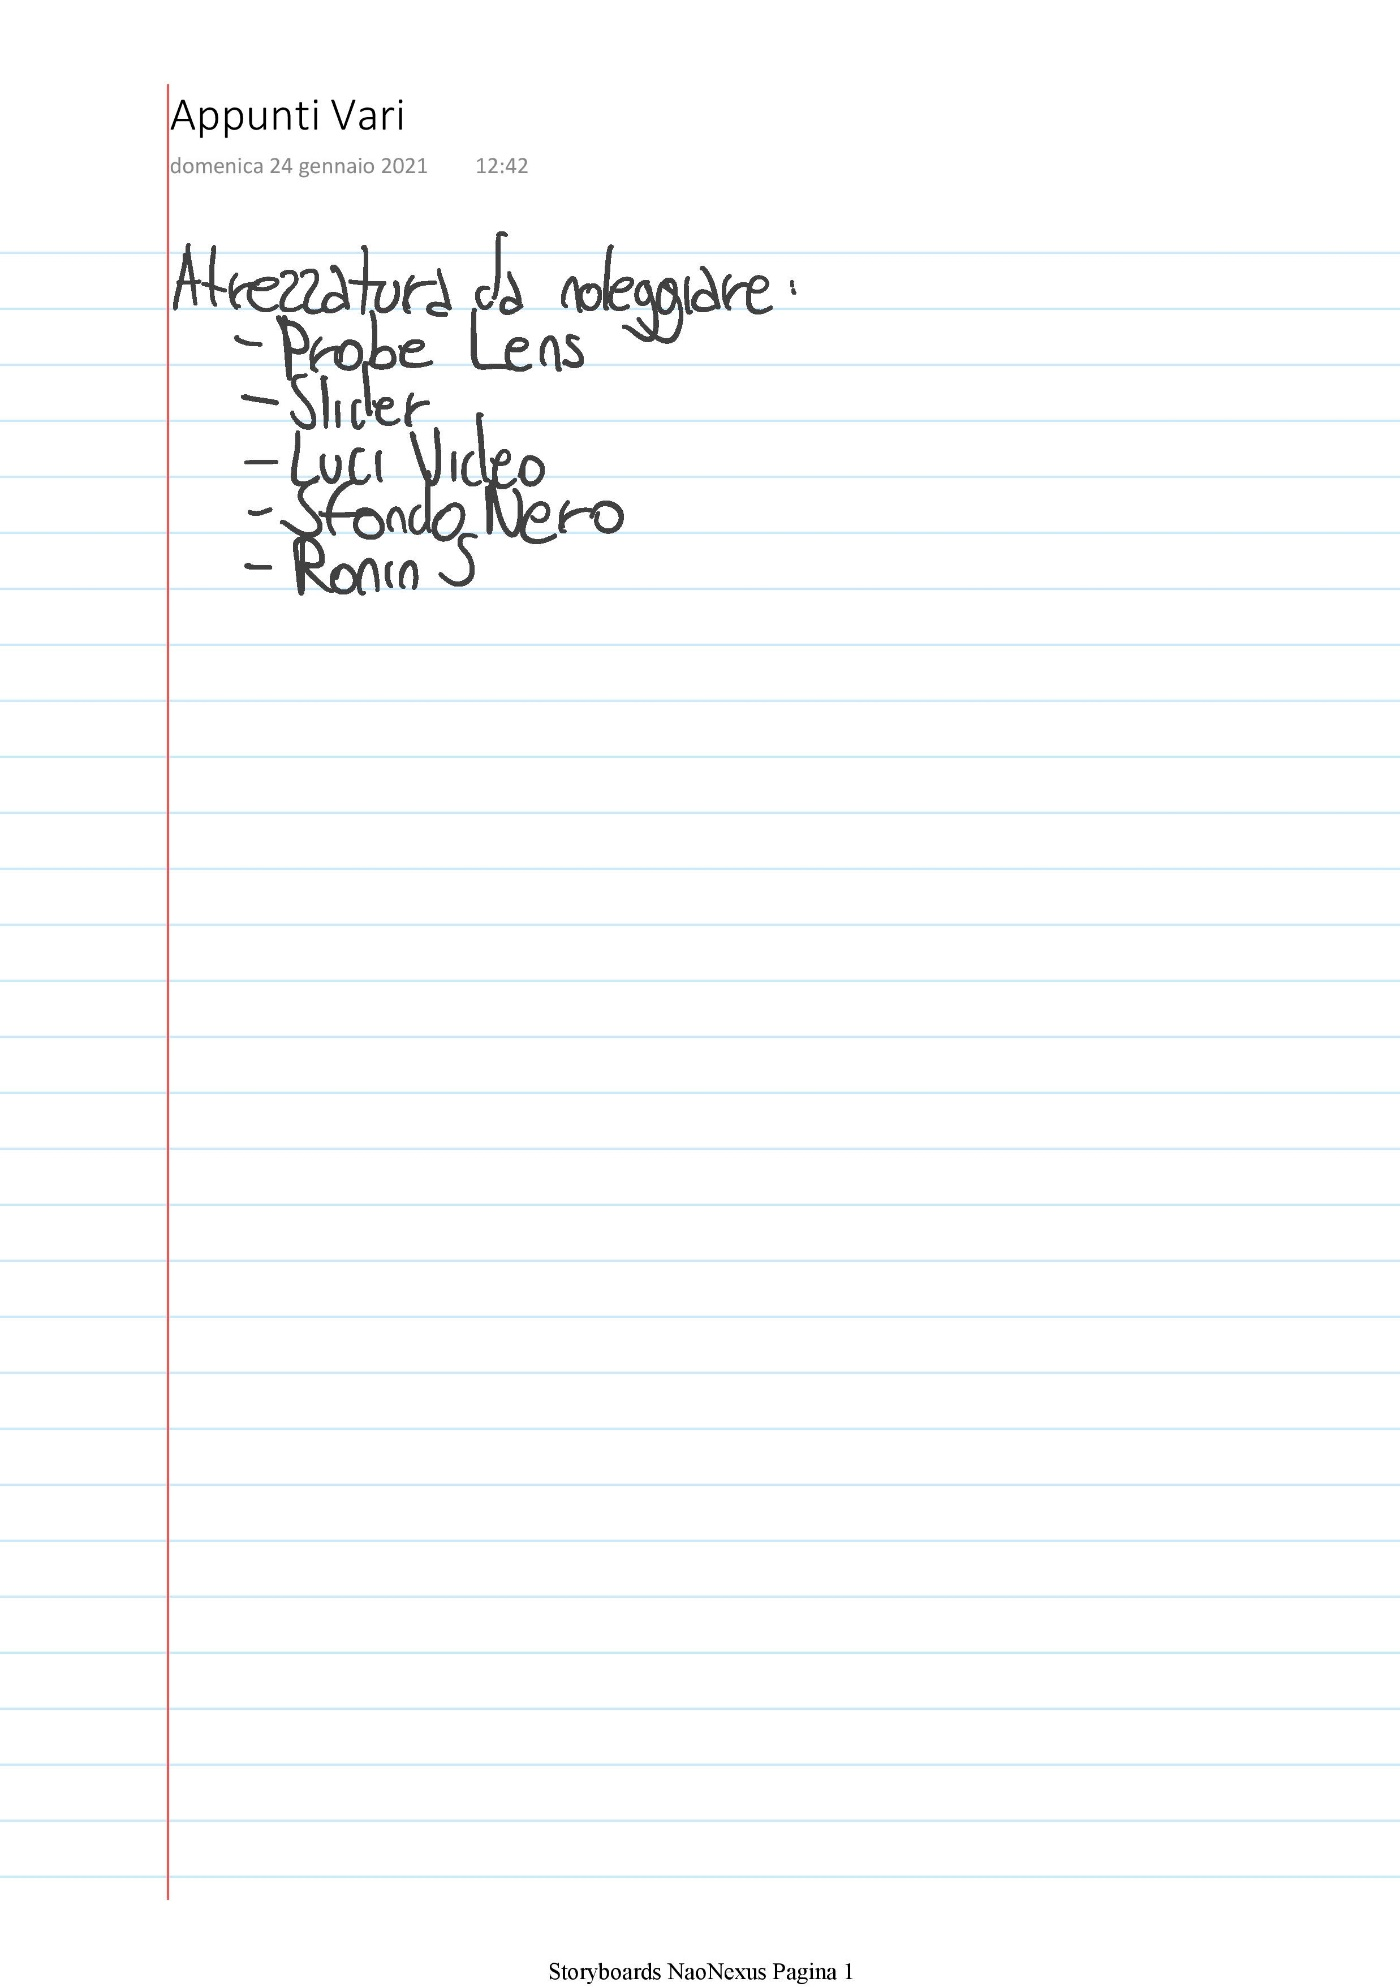 Appunti Vari
domenica 24 gennaio 2021 12:42
Atrezzatura da noleggiare:
- Probe Lens
- Slider
- Luci Video
- Sfondo Nero
- Ronin S
Storyboards NaoNexus Pagina 1